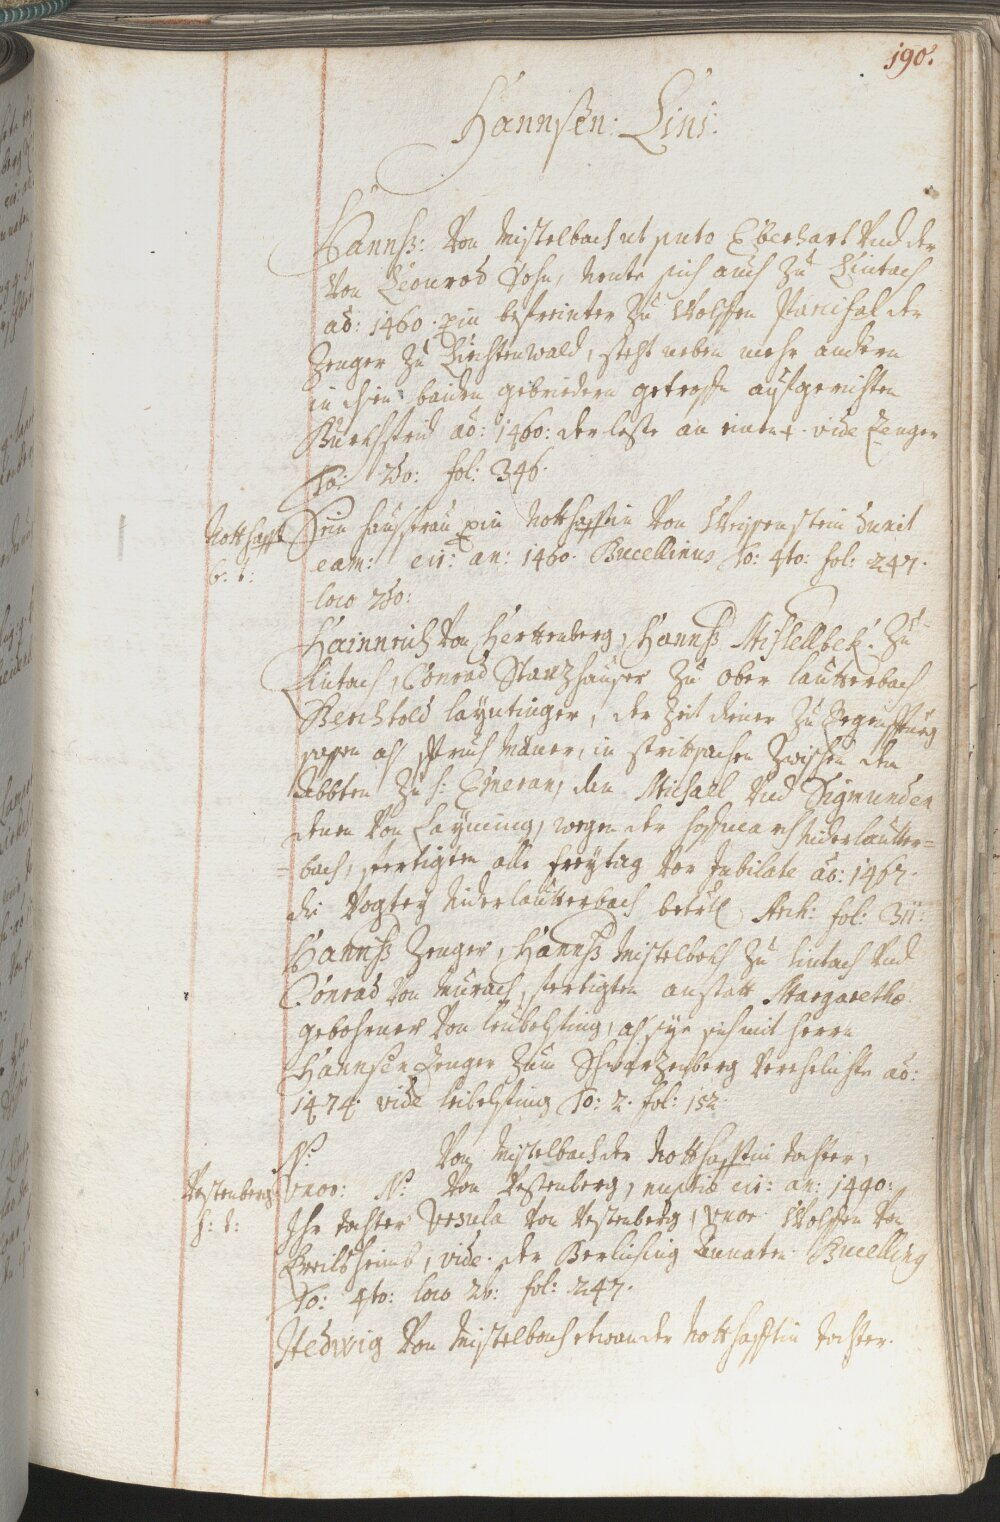 190.
Hannsen: Lini:
Hannß: Von Mistelbach ut puto Eberhart Vnd der
Von Leonrod Sohn, nente sich auch Zu Lintach
ao: 1460. ein befreinter Zu Wolfen Parcifal der
Zenger Zu Liechtenwald, steht neben mehr andern
in ihren baiden gebriedern getroffn aufgerichten
Burkhfrid ao: 1460: der leste an einem. vide Zenger
To: 2do: fol: 346.
Notthafft
b: t:
Sein haußfrau ein Notthafftin Von Weissenstein duxit
eam: cir: an: 1460. Bucellinus To: 4to: fol: 247.
loco 2do:
Hainnrich Von Herttenberg, Hannß Mistellbek: Zu
Lintach, Conrad Stanzhauser Zu ober lautterbach
Berchtold layntinger, der Zeit diener Zu Regenspurg
sassen als spruch Männer, in strittsachen Zwischen dem
Abbten Zu s: Emeran, dan Michael Vnd Sigmunden
denen Von Layming, wegen der hofmarch Niderlautter=
=bach, ferttigten alle freytag Vor Jubilate ao: 1467.
die Vogtey Niderlautterbach betrl. Arch: fol: 311:
Hannß Zenger, Hannß Mistelbekh Zu lintach Vnd
Conrad Von Murach, ferttigten anstatt Margarethæ
gebohrner Von leubelfing, als sye sich mit herrn
Hannsen Zenger Zum Schwarzenberg Verehelichte ao:
1474. vide leibelfing To: 2. fol: 152.
N: Von Mistelbach der Notthafftin tochter,
Vestenberg
h: t:
vxor: N: Von Vestenberg, nuptiæ cir: an: 1490:
Ihr tochter Vrsula Von Vestenberg, vxor Wolfen Von
Creilsheimb, vide der Berlichsing Annaten Bucelling
To: 4to: loco 2do: fol: 247.
Hedwig Von Mistelbach etwan der Notthafftin tochter.